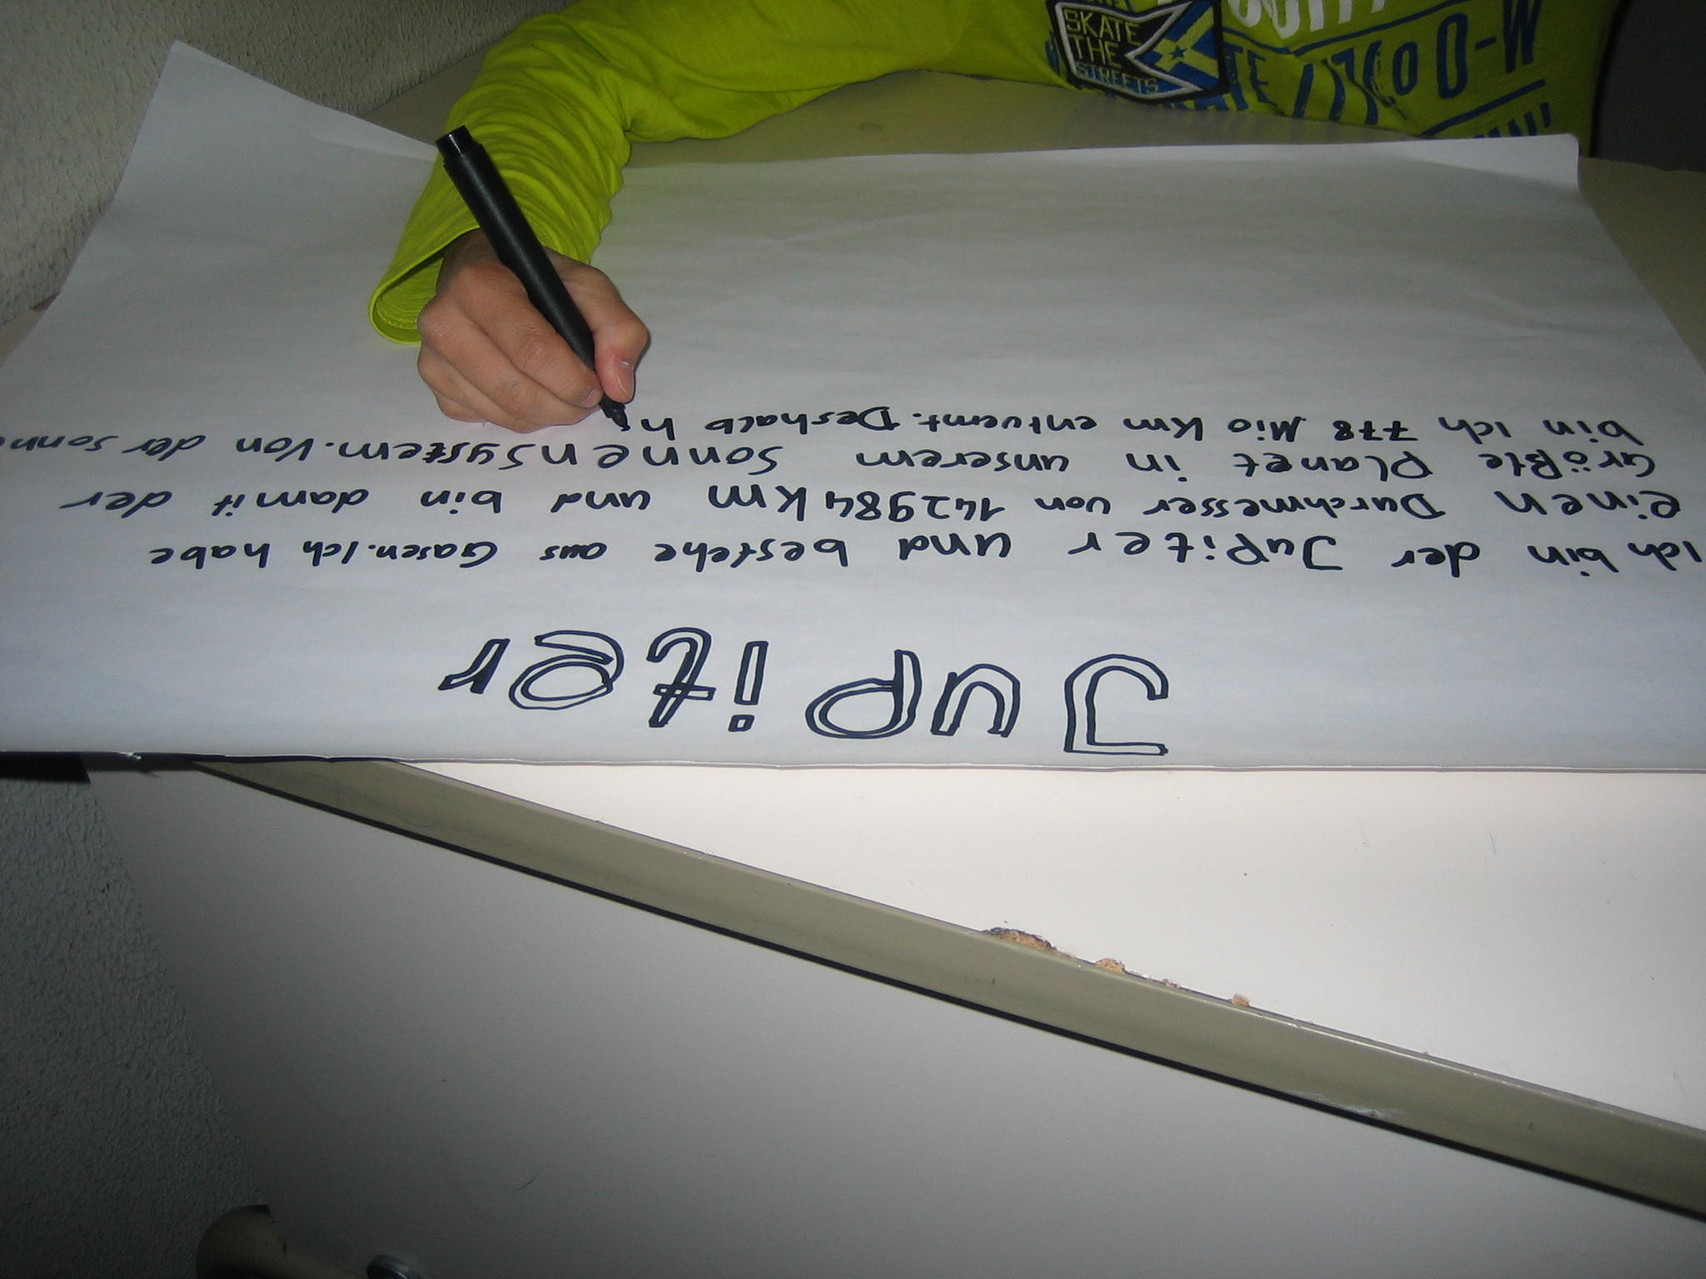 Jupiter
Ich bin der Jupiter und bestehe aus Gasen. Ich habe
einen Durchmesser von 142984 km und bin damit der
Größte Planet in unserem Sonnensystem. Von der Sonne
bin ich 778 Mio Km entvernt. Deshalb h
SKATE
THE
STREETS